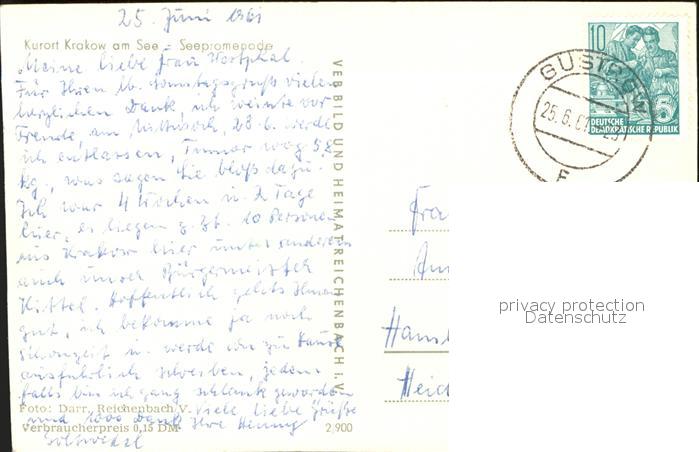 25. Juni 1961
Kurort Krakow am See - Seepromenade
Meine liebe Frau Westphal.
Für Ihren lb. Sonntagsgruß vielen
herzlichen Dank ich weinte vor
Freude, am Mittwoch, 28.6. werde
ich entlassen, wog 58
kg., was sagen Sie bloß dazu!
Ich war 4 Wochen u. 2 Tage
hier, es liegen z. Zt. 10 Personen
aus Krakow hier unter anderem
auch unser Bürgermeister
Kittel. Hoffentlich gehts Ihnen
gut, ich bekomme ja noch
Schonzeit u. werde von zu Hause
ausführlich schreiben, jeden
falls bin ich ganz schlank geworden
Foto: Darr, Reichenbach/V. Viele liebe Grüße
und 1000 Dank Ihre Henny
Verbraucherpreis 0,15 DM 2/900
VEB BILD UND HEIMAT REICHENBACH i.V.
10
GÜSTROW
25.6.61
5
DEUTSCHE
DEMOKRATISCHE REPUBLIK
Fra
Ham
privacy protection
Datenschutz